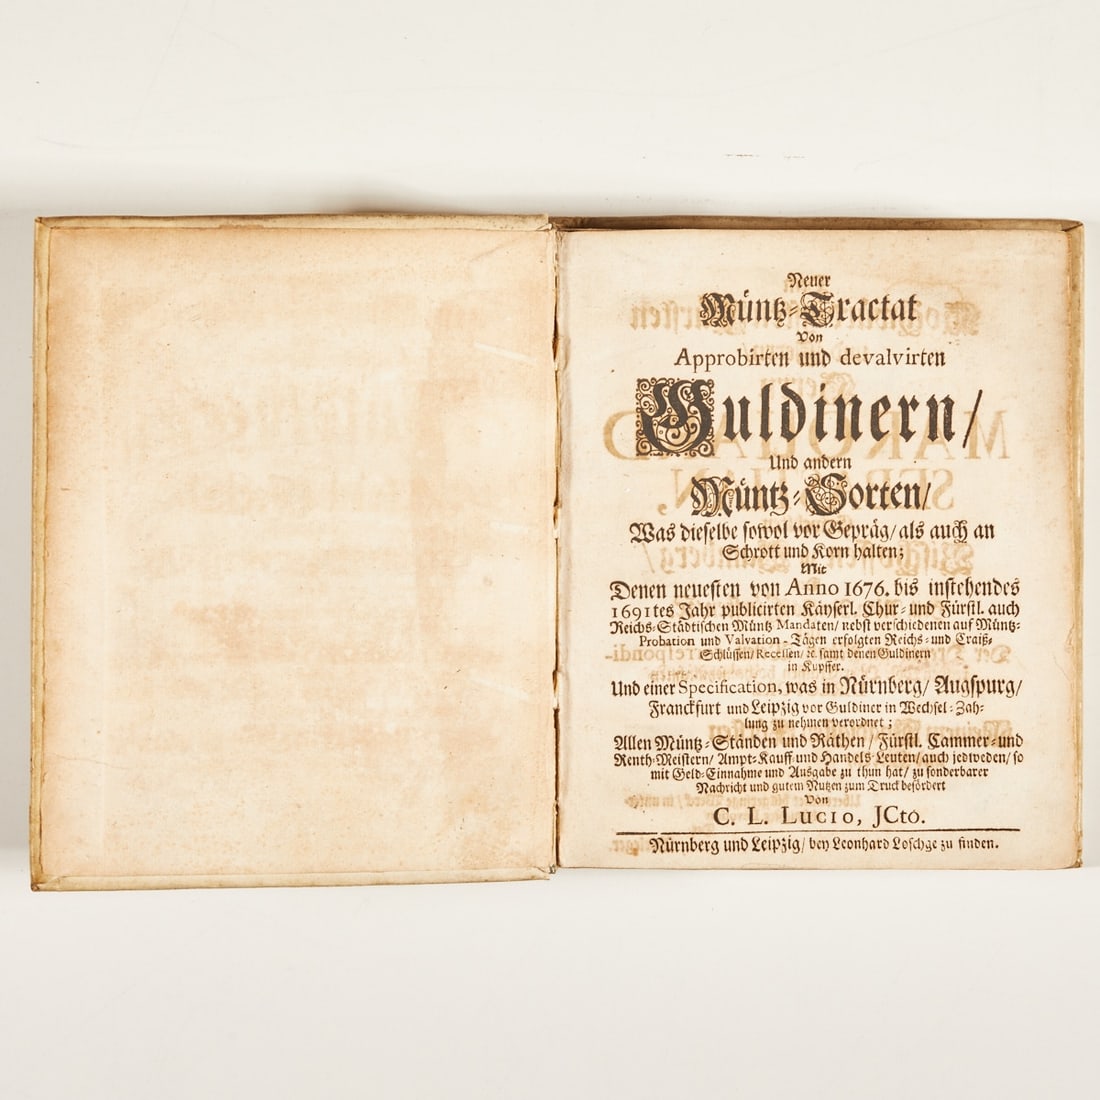 Neuer
Müntz-Tractat
Von
Approbirten und devalvirten
Guldinern/
Und andern
Müntz-Sorten/
Was dieselbe sowol vor Gepräg/als auch an
Schrott und Korn halten;
Mit
Denen neuesten von Anno 1676. bis instehendes
1691tes Jahr publicirten Käyserl. Chur- und Fürstl. auch
Reichs-Städtischen Müntz Mandaten/ nebst verschiedenen auf Müntz-
Probation und Valvation-Tägen erfolgten Reichs- und Craiß-
Schlüssen/Recessen/ &c. samt denen Guldinern
in Kupffer.
Und einer Specification, was in Nürnberg/ Augspurg/
Franckfurt und Leipzig vor Guldiner in Wechsel-Zah-
lung zu nehmen verordnet;
Allen Müntz-Ständen und Räthen/ Fürstl. Cammer- und
Renth-Meistern/ Ampt-Kauff und Handels-Leuten/auch jedweden/ so
mit Geld-Einnahme und Ausgabe zu thun hat/ zu sonderbarer
Nachricht und gutem Nutzen zum Druck befördert
Von
C. L. Lucio, JCto.
Nürnberg und Leipzig/ bey Leonhard Loschge zu finden.